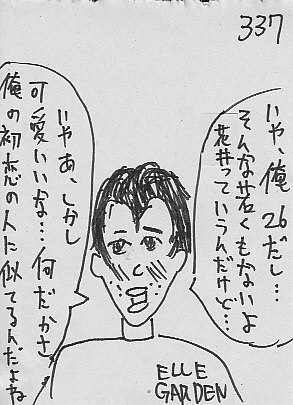 337
いや、俺26だし…
そんな若くもないよ
花井っていうんだけど…
いやあ、しかし
可愛いいな…何だかさ
俺の初恋の人に似てるんだよね
ELLE
GARDEN